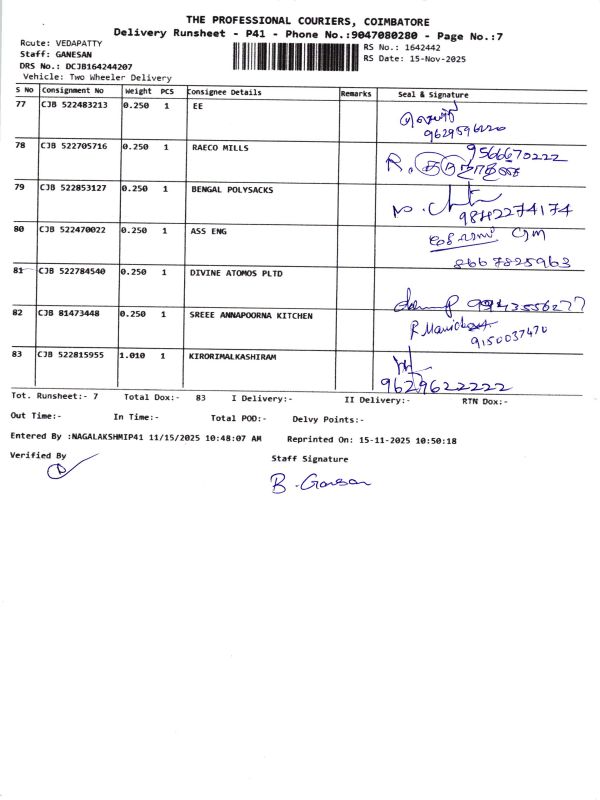 THE PROFESSIONAL COURIERS, COIMBATORE
Delivery Runsheet - P41 - Phone No.:9047080280 - Page No.:7
Route: VEDAPATTY
Staff: GANESAN
DRS No.: DCJB164244207
Vehicle: Two Wheeler Delivery
RS No.: 1642442
RS Date: 15-Nov-2025
S No Consignment No Weight PCS Consignee Details Remarks Seal & Signature
77 CJB 522483213 0.250 1 EE
9629596220
78 CJB 522705716 0.250 1 RAECO MILLS
9566670222
R.
79 CJB 522853127 0.250 1 BENGAL POLYSACKS
9842274174
80 CJB 522470022 0.250 1 ASS ENG
8667825963
81 CJB 522784540 0.250 1 DIVINE ATOMOS PLTD
9943556277
82 CJB 81473448 0.250 1 SREEE ANNAPOORNA KITCHEN
9150037470
83 CJB 522815955 1.010 1 KIRORIMALKASHIRAM
9629622222
Tot. Runsheet:- 7 Total Dox:- 83 I Delivery:- II Delivery:- RTN Dox:-
Out Time:- In Time:- Total POD:- Delvy Points:-
Entered By :NAGALAKSHMIP41 11/15/2025 10:48:07 AM Reprinted On: 15-11-2025 10:50:18
Verified By Staff Signature
B. Ganesan